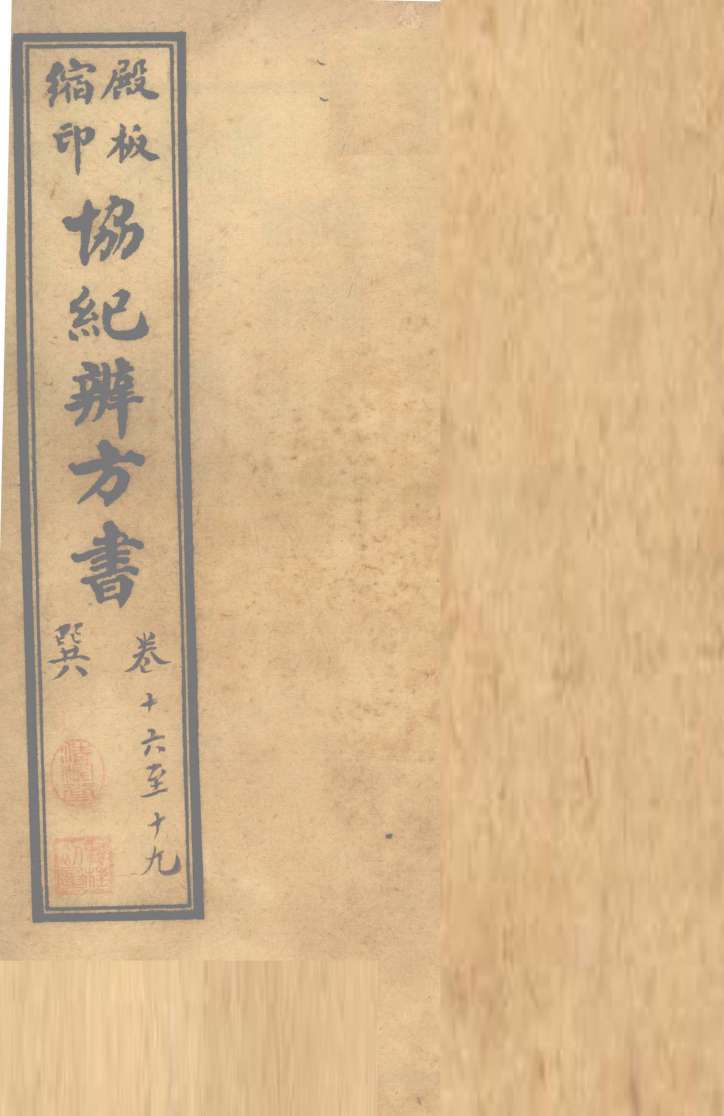 殿板
縮印
協紀辨方書
卷十六至十九
巽